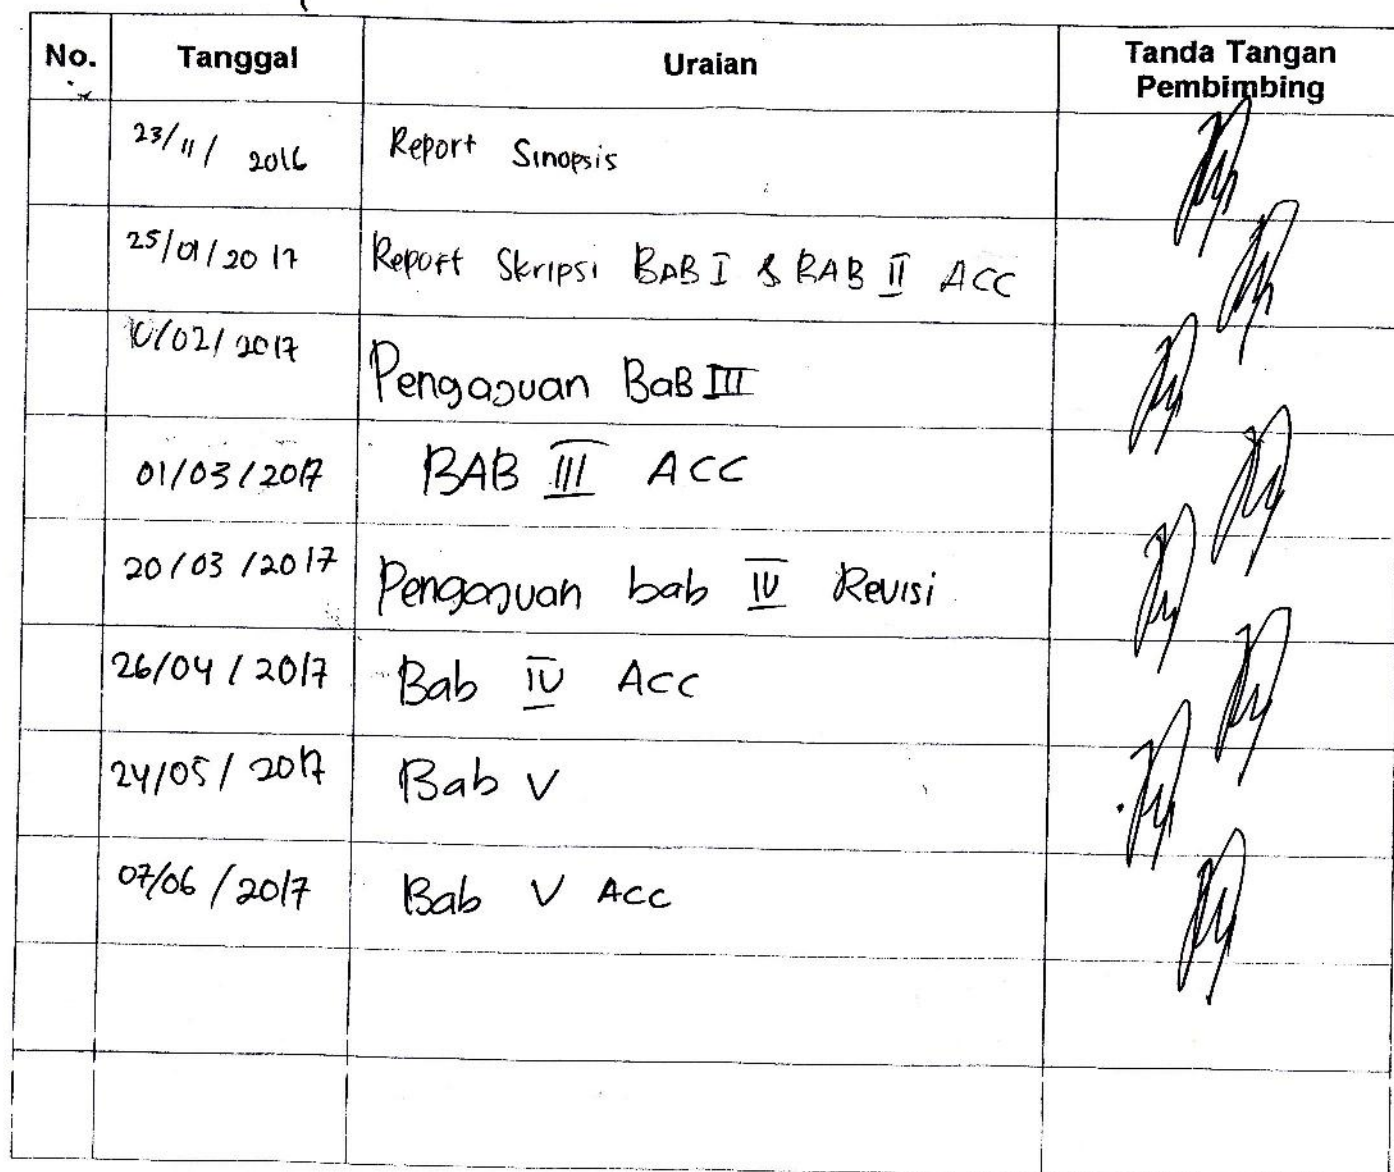 No. Tanggal Uraian Tanda Tangan
Pembimbing
23/11/ 2016 Report Sinopsis
25/01/2017 Report Skripsi BAB I & BAB II ACC
10/02/2017 Pengajuan BaB III
01/03/2017 BAB III ACC
20/03/2017 Pengajuan bab IV Revisi
26/04/2017 Bab IV ACC
24/05/2017 Bab V
07/06/2017 Bab V ACC